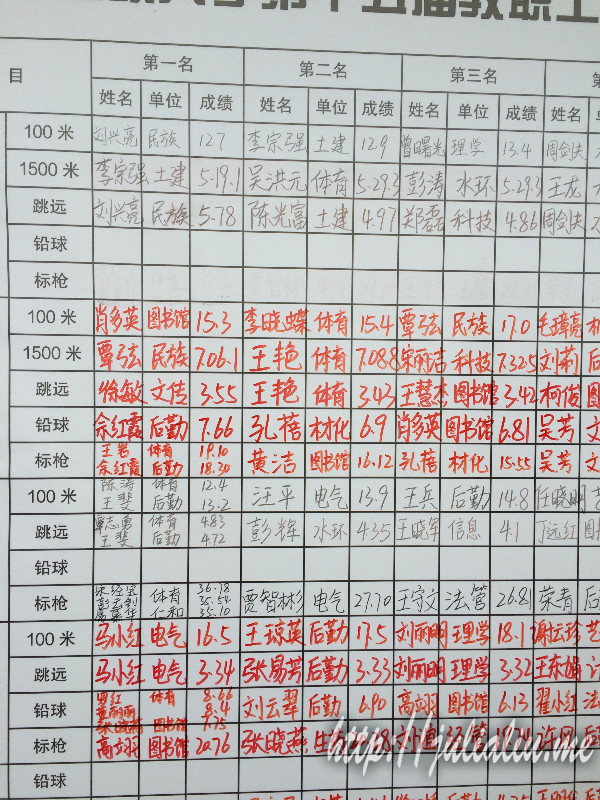 第十五届教职工
目 第一名 第二名 第三名 第
姓名 单位 成绩 姓名 单位 成绩 姓名 单位 成绩 姓名
100米 刘兴亮 民族 12.7 李宗强 土建 12.9 曾曙光 理学 13.4 周剑
1500米 李宗强 土建 5.19.1 吴洪元 体育 5.29.3 彭涛 水环 5.29.3 王龙
跳远 刘兴亮 民族 5.78 陈光富 土建 4.97 郑磊 科技 4.86 周剑
铅球
标枪
100米 肖多英 图书馆 15.3 李晓蝶 体育 15.4 覃弦 民族 17.0 毛璋亮 机
1500米 覃弦 民族 7.06.1 王艳 体育 7.08.8 宋丽洁 科技 7.32.5 刘莉 后
跳远 徐敏 文传 3.55 王艳 体育 3.43 王慧杰 图书馆 3.42 柯俊 图
铅球 佘红霞 后勤 7.66 孔蓓 材化 6.9 肖多英 图书馆 6.81 吴芳 文
标枪 王岩 体育 19.10
佘红霞 后勤 18.30 黄洁 图书馆 16.12 孔蓓 材化 15.55 吴芳 文
100米 陈涛 体育 12.4
王斐 后勤 13.2 汪平 电气 13.9 王兵 后勤 14.8 任晓明
跳远 覃志勇 体育 4.83
王斐 后勤 4.72 彭辉 水环 4.35 王晓军 信息 4.1 丁远红 图
铅球
标枪 体育 仁和 36.78 35.54 35.10 贾智彬 电气 27.70 王守文 法管 26.81 荣青 后
100米 马小红 电气 16.5 王琼英 后勤 17.5 刘丽明 理学 18.1 谢云珍 艺
跳远 马小红 电气 3.34 张易芳 后勤 3.33 刘丽明 理学 3.32 王东娟 计
铅球 体育 8.66 8.4 图书馆 7.75 刘云翠 后勤 6.90 高翊 图书馆 6.13 翟小红 法
标枪 高翊 图书馆 20.76 张晓燕 刘 许网 后
铅球
http://jalalu.me